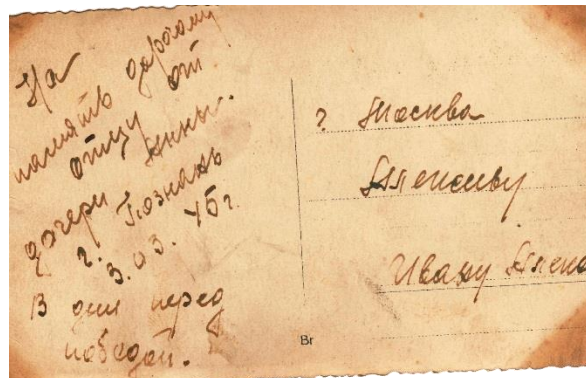 На
память дорогому
отцу от
дочери Нины.
г. Познань
3.03.45г.
В дни перед
победой.
г Москва
Ивану
Br